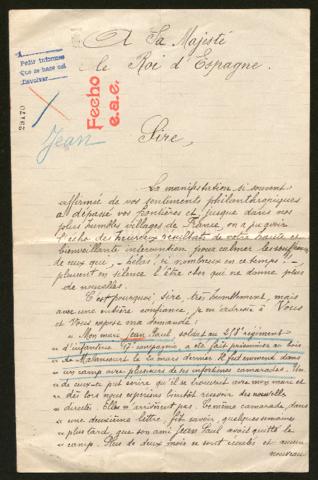 A Sa Majesté
le Roi d'Espagne.
Pedir informes
Que se hace así
Devolver
Fecho
e.a.e.
29170
Jean
Sire,
La manifestation si souvent
affirmée de vos sentiments philanthropiques
a dépassé vos frontières et jusque dans nos
plus humbles villages de France, on a pu ouïr
l'écho des heureux résultats de votre haute et
bienveillante intervention pour calmer les souffrances
de ceux qui, hélas! si nombreux en ce temps!!
pleurent en silence l'être cher qui ne donne plus
de nouvelles.
C'est pourquoi, Sire, très humblement, mais
avec une entière confiance, je m'adresse à Vous
et Vous expose ma demande:
" Mon mari Jean, Paul soldat au régiment
" d'infanterie compagnie a été fait prisonnier au bois
" de Malancourt le 20 mars dernier et fut emmené dans
" un camp avec plusieurs de ses infortunés camarades. Un
" de ceux-ci put écrire qu'il se trouvait avec mon mari et
" dès lors nous espérions bientôt recevoir des nouvelles
" directes. Elles n'arrivèrent pas. Ce même camarade, dans
" une deuxième lettre, fit savoir, quelques semaines
" plus tard, que son ami Jean Paul avait quitté le
" camp. Plus de deux mois se sont écoulés et aucun
nouveau